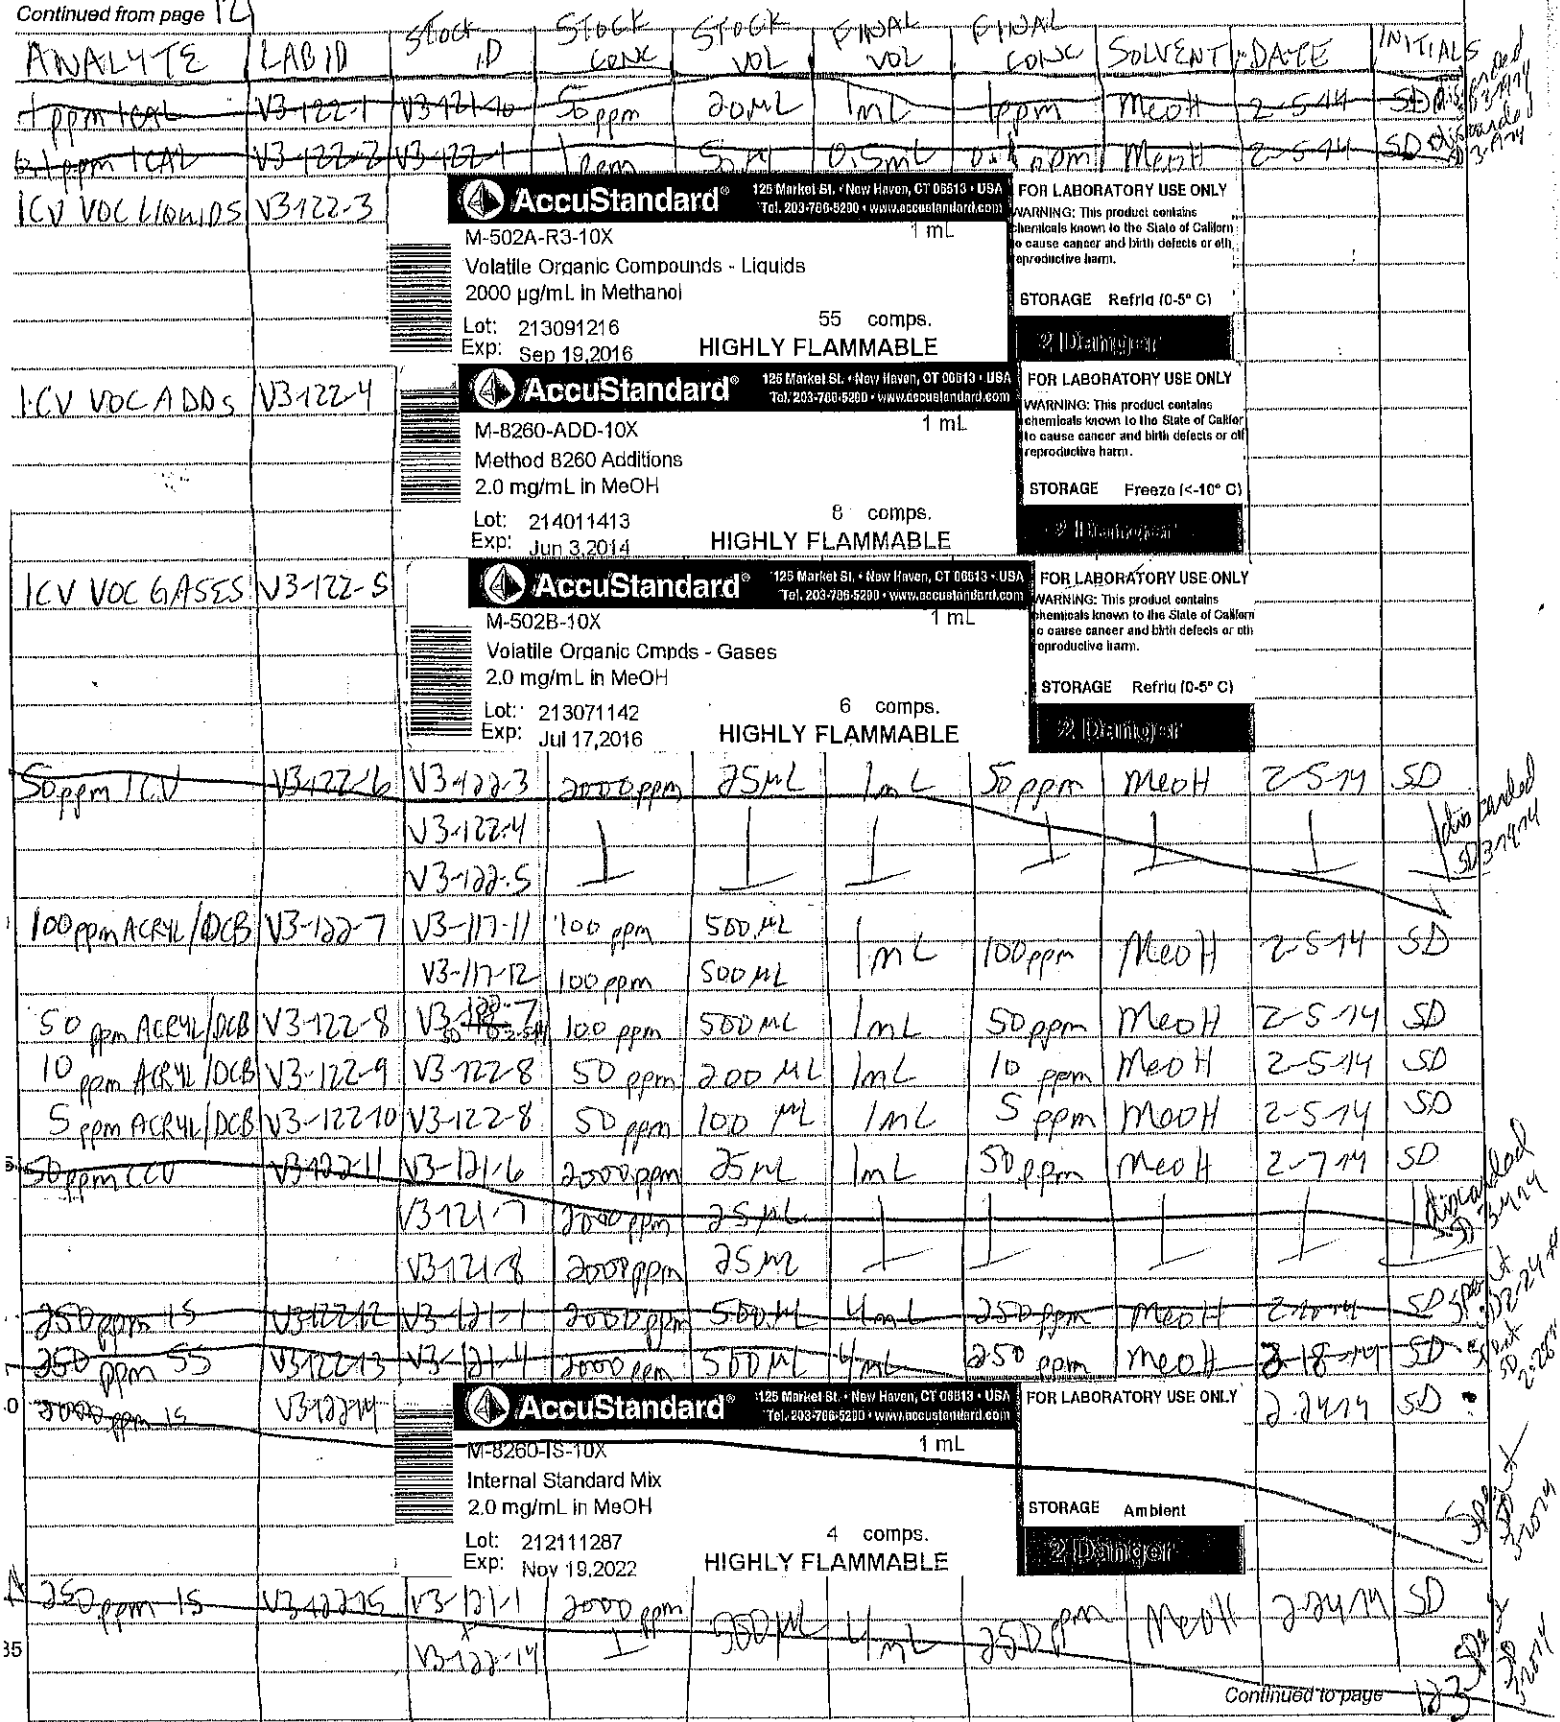 Continued from page 121
ANALYTE LAB ID STOCK ID STOCK CONC STOCK VOL FINAL VOL FINAL CONC SOLVENT DATE INITIALS
1 ppm ICAL V3-122-1 V3-121-10 50 ppm 20 µL 1mL 1ppm MeOH 2-5-14 SD discarded
0.1 ppm ICAL V3-122-2 V3-122-1 1 ppm 50 µl 0.5mL 0.1 ppm MeOH 2-5-14 SD discarded
ICV VOC LIQUIDS V3-122-3
AccuStandard® 125 Market St. • New Haven, CT 06513 • USA
Tel. 203-786-5290 • www.accustandard.com
M-502A-R3-10X 1 mL
Volatile Organic Compounds - Liquids
2000 µg/mL in Methanol
Lot: 213091216 55 comps.
Exp: Sep 19,2016 HIGHLY FLAMMABLE
FOR LABORATORY USE ONLY
WARNING: This product contains
chemicals known to the State of Californ
o cause cancer and birth defects or oth
eproductive harm.
STORAGE Refrig (0-5° C)
2 Danger
ICV VOC ADDs V3-122-4
AccuStandard® 125 Market St. • New Haven, CT 06513 • USA
Tel. 203-786-5290 • www.accustandard.com
M-8260-ADD-10X 1 mL
Method 8260 Additions
2.0 mg/mL in MeOH
Lot: 214011413 8 comps.
Exp: Jun 3,2014 HIGHLY FLAMMABLE
FOR LABORATORY USE ONLY
WARNING: This product contains
chemicals known to the State of Califor
to cause cancer and birth defects or oth
reproductive harm.
STORAGE Freeze (<-10° C)
2 Danger
ICV VOC GASES V3-122-5
AccuStandard® 125 Market St. • New Haven, CT 06513 • USA
Tel. 203-786-5290 • www.accustandard.com
M-502B-10X 1 mL
Volatile Organic Cmpds - Gases
2.0 mg/mL in MeOH
Lot: 213071142 6 comps.
Exp: Jul 17,2016 HIGHLY FLAMMABLE
FOR LABORATORY USE ONLY
WARNING: This product contains
chemicals known to the State of Californ
o cause cancer and birth defects or oth
eproductive harm.
STORAGE Refrig (0-5° C)
2 Danger
50ppm ICV V3-122-6 V3-122-3 2000ppm 25µL 1mL 50 ppm MeOH 2-5-14 SD discarded
V3-122-4 SD 3-19-14
V3-122-5
100ppm ACRYL/DCB V3-122-7 V3-117-11 100 ppm 500 µL 1mL 100ppm MeOH 2-5-14 SD
V3-117-12 100 ppm 500 µL
50 ppm ACRYL/DCB V3-122-8 V3-122-7 100 ppm 500 µL 1mL 50ppm MeOH 2-5-14 SD
10 ppm ACRYL/DCB V3-122-9 V3-122-8 50 ppm 200 µL 1mL 10 ppm MeOH 2-5-14 SD
5 ppm ACRYL/DCB V3-122-10 V3-122-8 50 ppm 100 µL 1mL 5 ppm MeOH 2-5-14 SD
50ppm CCV V3-122-11 V3-121-6 2000ppm 25µL 1mL 50 ppm MeOH 2-7-14 SD
V3-121-7 2000 ppm 25µL discarded
V3-121-8 2000ppm 25µL
250ppm IS V3-122-12 V3-121-1 2000ppm 500µL 4mL 250ppm MeOH SD spent
250 ppm SS V3-122-13 V3-121-4 2000 ppm 500µL 4mL 250 ppm MeOH 2-18-14 SD spent
2000ppm IS V3-122-14 2-24-14 SD
AccuStandard® 125 Market St. • New Haven, CT 06513 • USA
Tel. 203-786-5290 • www.accustandard.com
M-8260-IS-10X 1 mL
Internal Standard Mix
2.0 mg/mL in MeOH
Lot: 212111287 4 comps.
Exp: Nov 19,2022 HIGHLY FLAMMABLE
FOR LABORATORY USE ONLY
STORAGE Ambient
2 Danger
Spent
250ppm IS V3-122-15 V3-121-1 2000 ppm 500µL 4mL 250 ppm MeOH 2-24-14 SD
35 V3-122-14
Continued to page 123